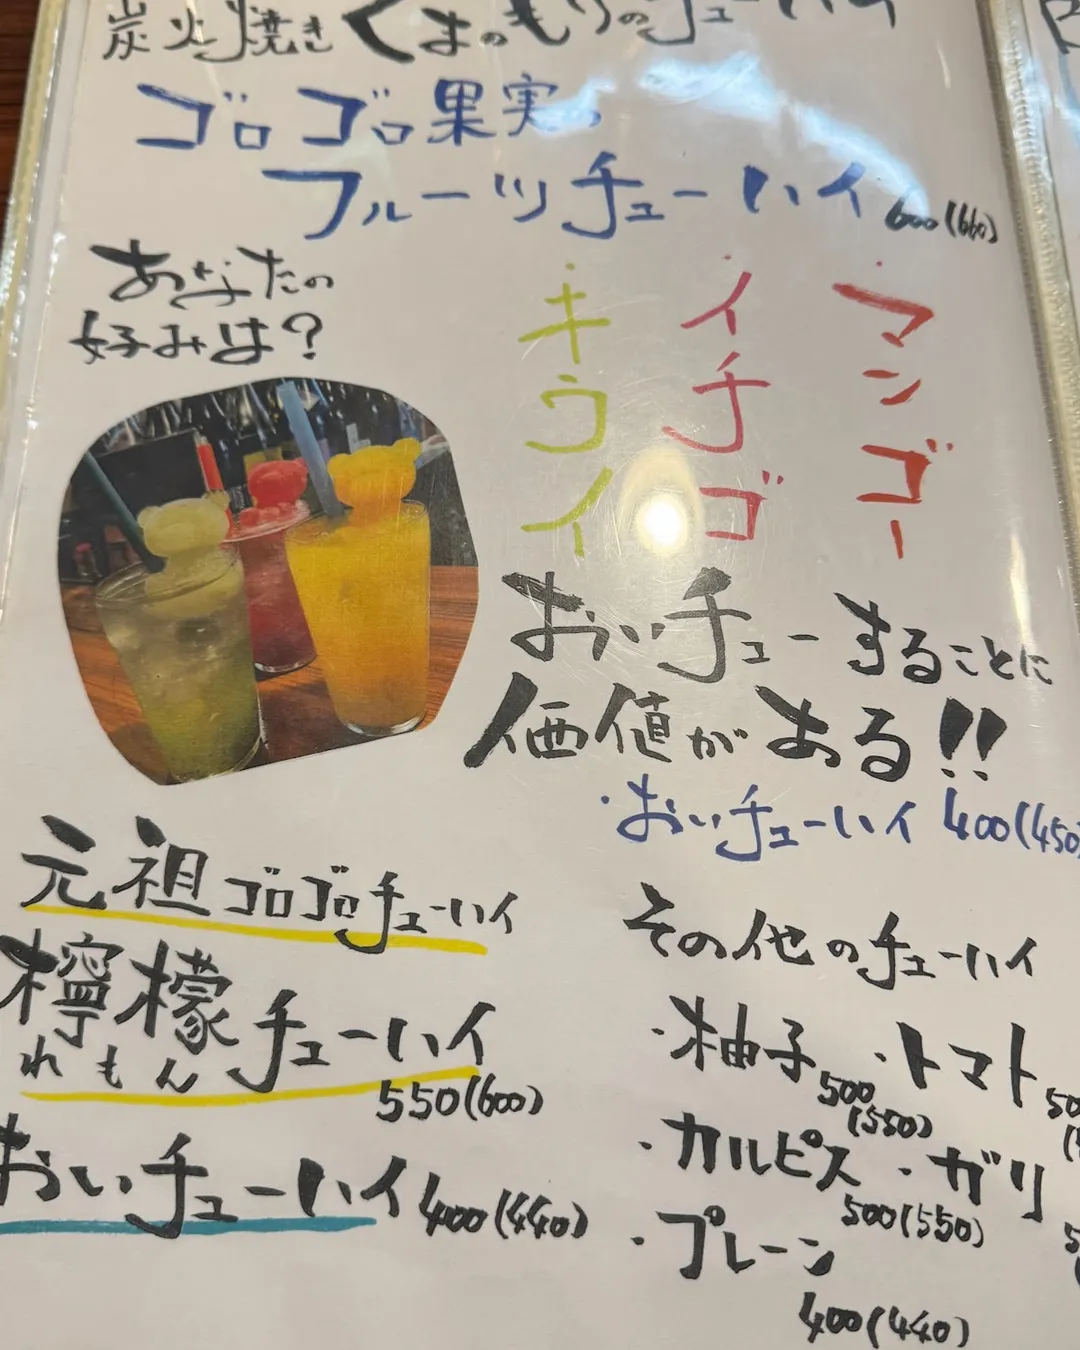 炭火焼きくまのもりのチューハイ
ゴロゴロ果実の
フルーツチューハイ 600(660)
あなたの
好みは?
・キウイ
・イチゴ
・マンゴー
おいチューすることに
価値がある!!
・おいチューハイ 400(450)
元祖ゴロゴロチューハイ
檸檬チューハイ
れもん
550(600)
おいチューハイ 400(440)
その他のチューハイ
・柚子 500(550)
・トマト
・カルピス 500(550)
・ガリ
・プレーン
400(440)